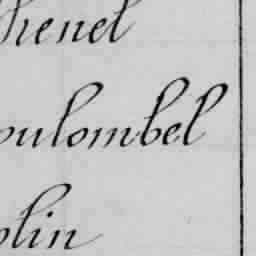 henel
oulombel
olin